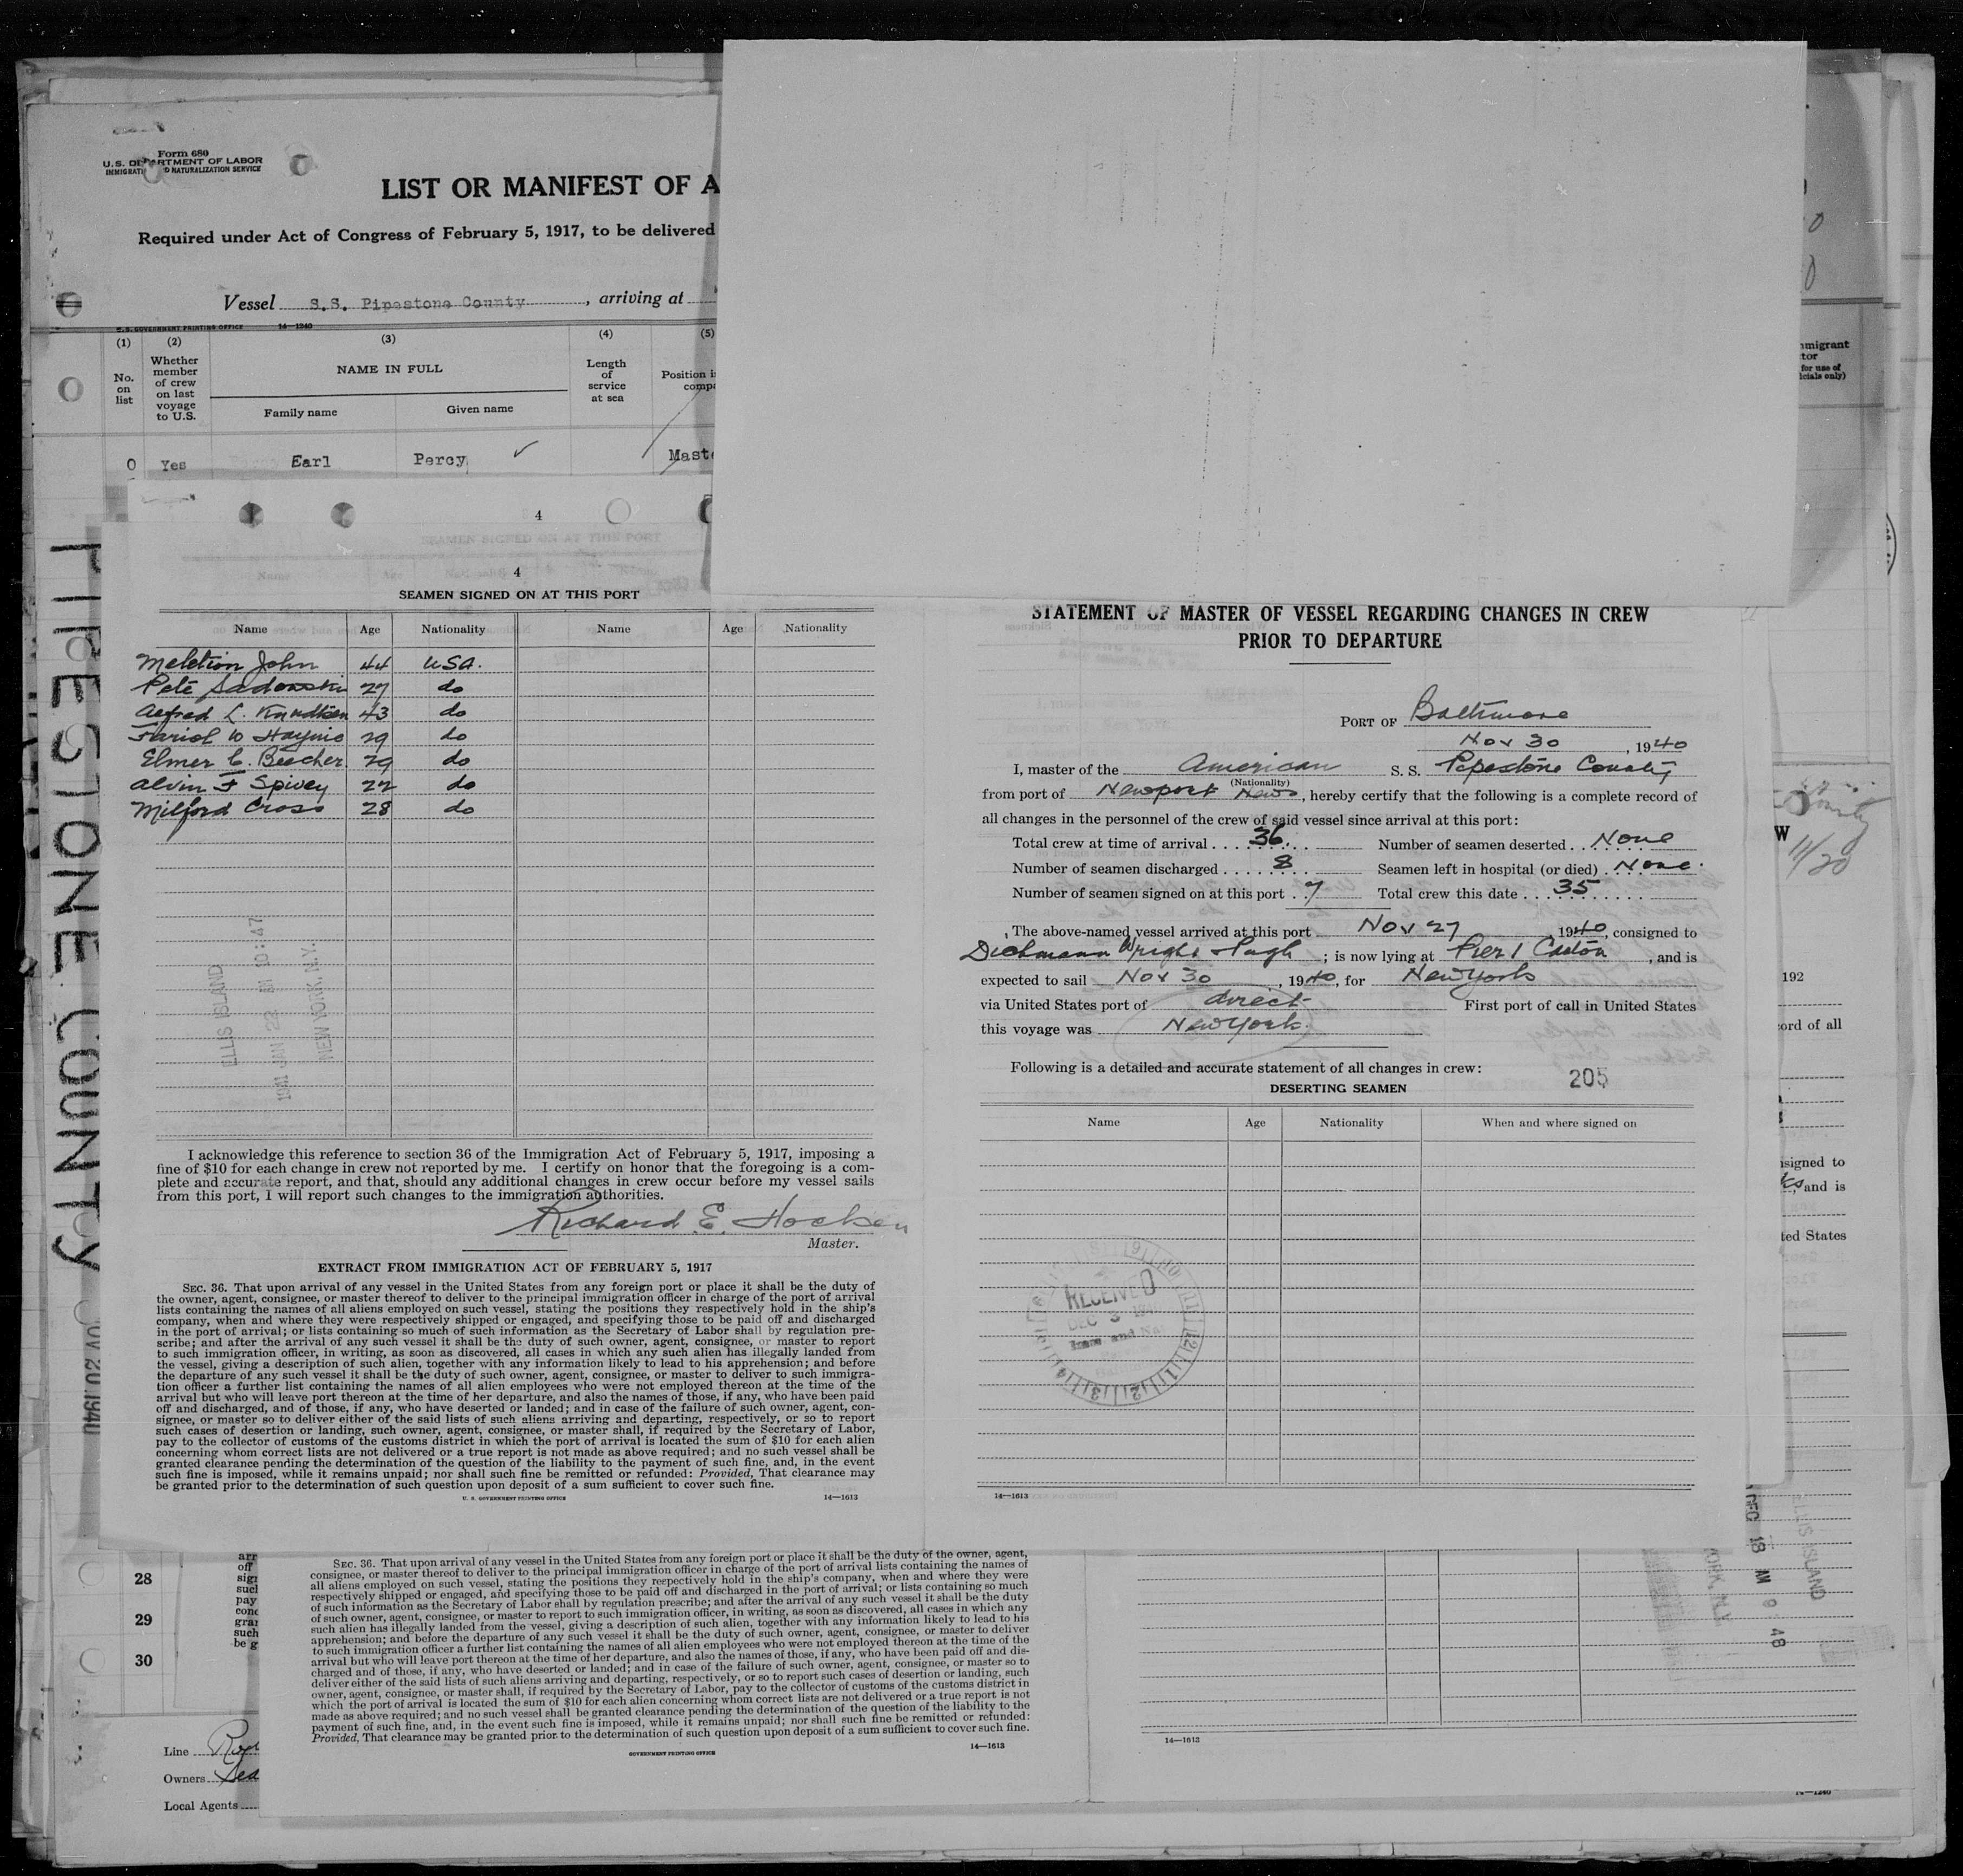 Form 680
U.S. DEPARTMENT OF LABOR
NATURALIZATION SERVICE
LIST OR MANIFEST OF A
Required under Act of Congress of February 5, 1917, to be delivered
Vessel S.S. Pipestone County, arriving at
U.S. GOVERNMENT PRINTING OFFICE 14—1240
(1) (2) (3) (4) (5)
No. on list
Whether member of crew on last voyage to U.S.
NAME IN FULL
Family name Given name
Length of service at sea
Position i
comp
0 Yes Earl Percy Mast
4
4
SEAMEN SIGNED ON AT THIS PORT
Name Age Nationality Name Age Nationality
Meletion John 44 USA.
Pete Sadowski 27 do
Alfred L. Knudtsen 43 do
W Haynie 29 do
Elmer C. Beecher 29 do
Alvin F Spivey 22 do
Milford Cross 28 do
ELLIS ISLAND
1941 JAN 22 AM 10:47
NEW YORK, N.Y.
I acknowledge this reference to section 36 of the Immigration Act of February 5, 1917, imposing a
fine of $10 for each change in crew not reported by me. I certify on honor that the foregoing is a com-
plete and accurate report, and that, should any additional changes in crew occur before my vessel sails
from this port, I will report such changes to the immigration authorities.
Richard E. Hocken
Master.
EXTRACT FROM IMMIGRATION ACT OF FEBRUARY 5, 1917
SEC. 36. That upon arrival of any vessel in the United States from any foreign port or place it shall be the duty of
the owner, agent, consignee, or master thereof to deliver to the principal immigration officer in charge of the port of arrival
lists containing the names of all aliens employed on such vessel, stating the positions they respectively hold in the ship's
company, when and where they were respectively shipped or engaged, and specifying those to be paid off and discharged
in the port of arrival; or lists containing so much of such information as the Secretary of Labor shall by regulation pre-
scribe; and after the arrival of any such vessel it shall be the duty of such owner, agent, consignee, or master to report
to such immigration officer, in writing, as soon as discovered, all cases in which any such alien has illegally landed from
the vessel, giving a description of such alien, together with any information likely to lead to his apprehension; and before
the departure of any such vessel it shall be the duty of such owner, agent, consignee, or master to deliver to such immigra-
tion officer a further list containing the names of all alien employees who were not employed thereon at the time of the
arrival but who will leave port thereon at the time of her departure, and also the names of those, if any, who have been paid
off and discharged, and of those, if any, who have deserted or landed; and in case of the failure of such owner, agent, con-
signee, or master so to deliver either of the said lists of such aliens arriving and departing, respectively, or so to report
such cases of desertion or landing, such owner, agent, consignee, or master shall, if required by the Secretary of Labor,
pay to the collector of customs of the customs district in which the port of arrival is located the sum of $10 for each alien
concerning whom correct lists are not delivered or a true report is not made as above required; and no such vessel shall be
granted clearance pending the determination of the question of the liability to the payment of such fine, and, in the event
such fine is imposed, while it remains unpaid; nor shall such fine be remitted or refunded: Provided, That clearance may
be granted prior to the determination of such question upon deposit of a sum sufficient to cover such fine.
U. S. GOVERNMENT PRINTING OFFICE 14—1613
STATEMENT OF MASTER OF VESSEL REGARDING CHANGES IN CREW
PRIOR TO DEPARTURE
PORT OF Baltimore
Nov 30, 1940
I, master of the American S. S. Pipestone County
(Nationality)
from port of Newport News, hereby certify that the following is a complete record of
all changes in the personnel of the crew of said vessel since arrival at this port:
Total crew at time of arrival 36. Number of seamen deserted None
Number of seamen discharged 8 Seamen left in hospital (or died) None.
Number of seamen signed on at this port 7 Total crew this date 35
The above-named vessel arrived at this port Nov 27 1940, consigned to
Dichmann Wright Pugh; is now lying at Pier 1 Canton, and is
expected to sail Nov 30, 1940, for New York
via United States port of direct First port of call in United States
this voyage was New York.
Following is a detailed and accurate statement of all changes in crew:
205
DESERTING SEAMEN
Name Age Nationality When and where signed on
RECEIVED
DEC 3
14—1613
PIPESTONE COUNTY
NOV 20 1940
mmigrant
tor
for use of
icials only)
W
11/20
192
ord of all
signed to
and is
ted States
DEC 18 AM 9 48
ELLIS ISLAND
YORK, N.Y.
28
29
30
arr
off
sign
such
pay
conc
gran
such
be g
SEC. 36. That upon arrival of any vessel in the United States from any foreign port or place it shall be the duty of the owner, agent,
consignee, or master thereof to deliver to the principal immigration officer in charge of the port of arrival lists containing the names of
all aliens employed on such vessel, stating the positions they respectively hold in the ship's company, when and where they were
respectively shipped or engaged, and specifying those to be paid off and discharged in the port of arrival; or lists containing so much
of such information as the Secretary of Labor shall by regulation prescribe; and after the arrival of any such vessel it shall be the duty
of such owner, agent, consignee, or master to report to such immigration officer, in writing, as soon as discovered, all cases in which any
such alien has illegally landed from the vessel, giving a description of such alien, together with any information likely to lead to his
apprehension; and before the departure of any such vessel it shall be the duty of such owner, agent, consignee, or master to deliver
to such immigration officer a further list containing the names of all alien employees who were not employed thereon at the time of the
arrival but who will leave port thereon at the time of her departure, and also the names of those, if any, who have been paid off and dis-
charged and of those, if any, who have deserted or landed; and in case of the failure of such owner, agent, consignee, or master so to
deliver either of the said lists of such aliens arriving and departing, respectively, or so to report such cases of desertion or landing, such
owner, agent, consignee, or master shall, if required by the Secretary of Labor, pay to the collector of customs of the customs district in
which the port of arrival is located the sum of $10 for each alien concerning whom correct lists are not delivered or a true report is not
made as above required; and no such vessel shall be granted clearance pending the determination of the question of the liability to the
payment of such fine, and, in the event such fine is imposed, while it remains unpaid; nor shall such fine be remitted or refunded:
Provided, That clearance may be granted prior to the determination of such question upon deposit of a sum sufficient to cover such fine.
GOVERNMENT PRINTING OFFICE 14—1613
14—1613
Line
Owners
Local Agents
14—1240